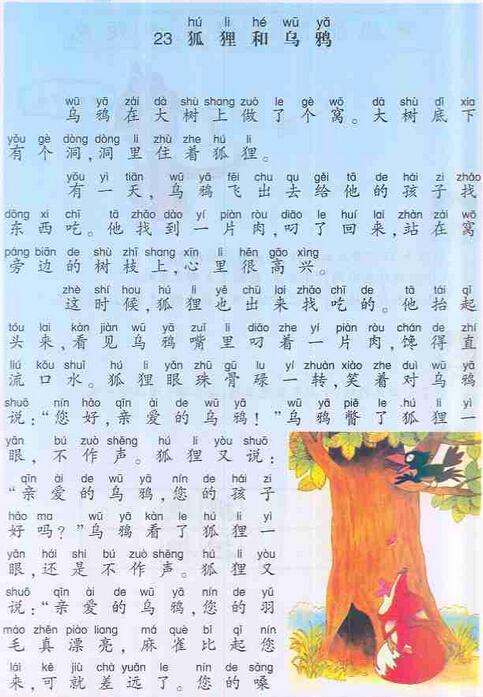 hú li hé wū yā
23 狐狸和乌鸦
wū yā zài dà shù shang zuò le gè wō dà shù dǐ xia
乌鸦在大树上做了个窝。大树底下
yǒu gè dòng dòng li zhù zhe hú li
有个洞,洞里住着狐狸。
yǒu yì tiān wū yā fēi chu qu gěi tā de hái zi zhǎo
有一天,乌鸦飞出去给他的孩子找
dōng xi chī tā zhǎo dào yí piàn ròu diāo le huí lai zhàn zài wō
东西吃。他找到一片肉,叼了回来,站在窝
páng biān de shù zhī shang xīn li hěn gāo xìng
旁边的树枝上,心里很高兴。
zhè shí hou hú li yě chū lai zhǎo chī de tā tái qǐ
这时候,狐狸也出来找吃的。他抬起
tóu lai kàn jiàn wū yā zuǐ li diāo zhe yí piàn ròu chán de zhí
头来,看见乌鸦嘴里叼着一片肉,馋得直
liú kǒu shuǐ hú li yǎn zhū gū lu yí zhuàn xiào zhe duì wū yā
流口水。狐狸眼珠骨碌一转,笑着对乌鸦
shuō nín hǎo qīn ài de wū yā wū yā piē le hú li yì
说:“您好,亲爱的乌鸦!”乌鸦瞥了狐狸一
yǎn bú zuò shēng hú li yòu shuō
眼,不作声。狐狸又说:
qīn ài de wū yā nín de hái zi
“亲爱的乌鸦,您的孩子
hǎo ma wū yā kàn le hú li yì
好吗?”乌鸦看了狐狸一
yǎn hái shi bú zuò shēng hú li yòu
眼,还是不作声。狐狸又
shuō qīn ài de wū yā nín de yǔ
说:“亲爱的乌鸦,您的羽
máo zhēn piào liang má què bǐ qǐ nín
毛真漂亮,麻雀比起您
lái kě jiù chà yuǎn le nín de sǎng
来,可就差远了。您的嗓